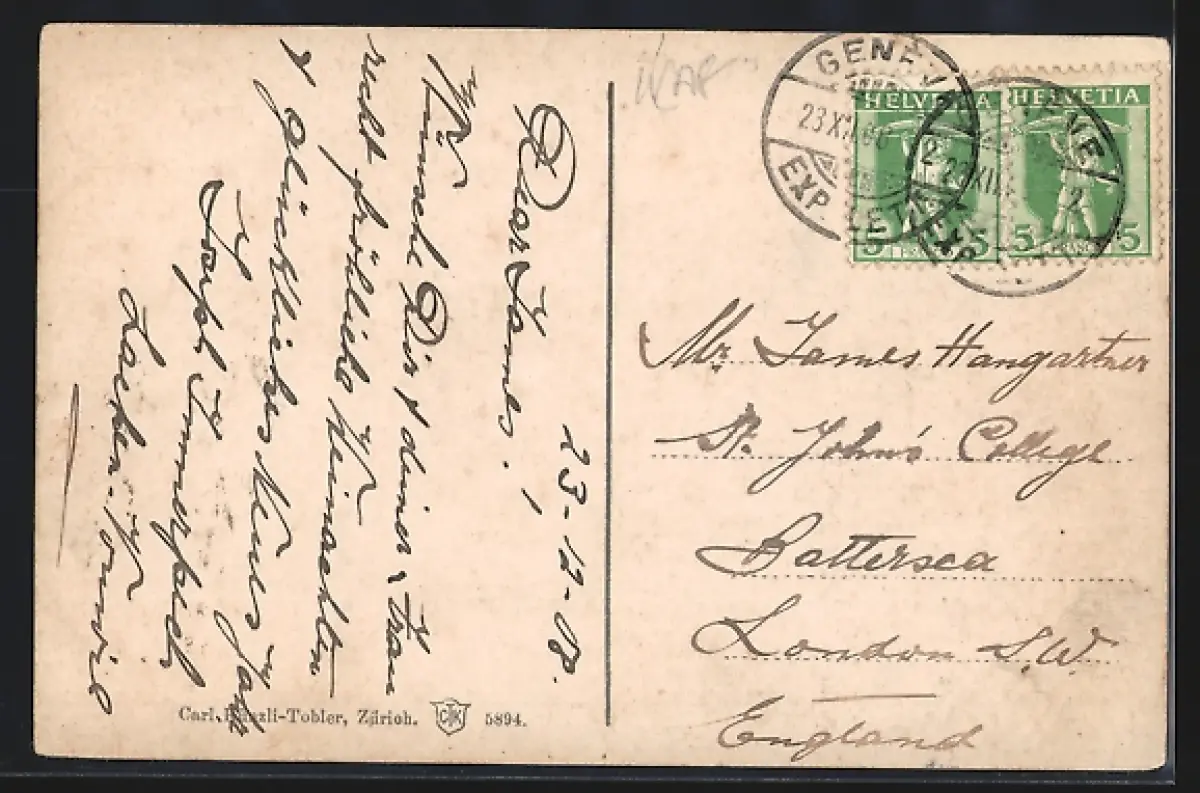 23-12-08.
Dear James,
Wünsche Dir & deiner Frau
recht fröhliche Weinachten
& glückliches Neues Jahr
Joseph
GENÈVE
23 XII 08
EXP. LETT.
HELVETIA
5 5
GENÈVE
23 XII
EXP. LETT.
HELVETIA
5 5
Mr. James Hangartner
St. John's College
Battersea
London S.W.
England
Carl Künzli-Tobler, Zürich. CKT 5894.